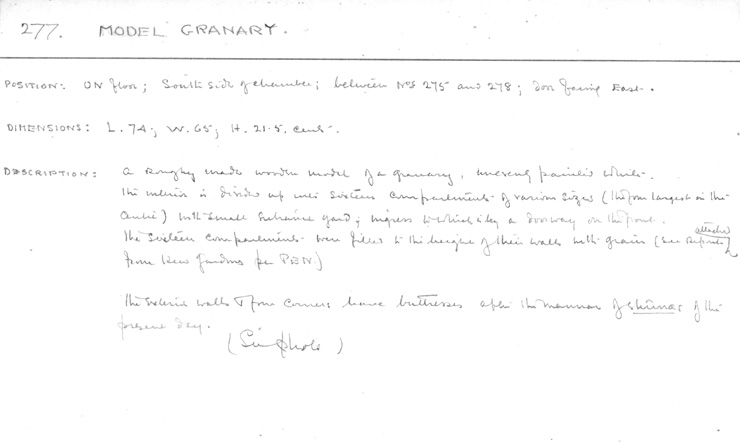 277. MODEL GRANARY.
POSITION: ON floor; South side of chamber; between Nos 275 and 278; door facing East.
DIMENSIONS: L. 74.; W. 65; H. 21.5. cents.
DESCRIPTION: A roughly made wooden model of a granary, merely painted white.
The interior is divided up into sixteen compartments of various sizes (the four largest in the
centre) with small entrance yard; ingress to which is by a doorway on the front.
The sixteen compartments were filled to the height of their walls with grain (see Reports attached
from Kew Gardens per P.E.N.)
The exterior walls & four corners have buttresses after the manner of shunas of the
present day.
(See photo)